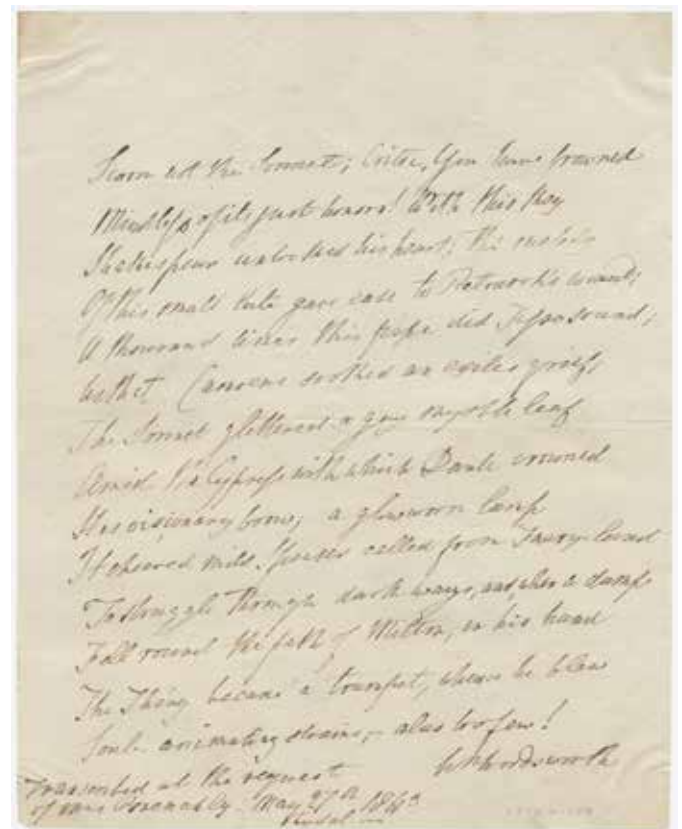 Scorn not the Sonnet; Critic, you have frowned
Mindless of its just honors! With this Key
Shakespeare unlocked his heart; the melody
Of this small Lute gave ease to Petrarch's wound;
A thousand times this pipe did Tasso sound;
With it Camoens soothed an exiles grief;
The Sonnet glittered a gay myrtle leaf
Amid the Cypress with which Dante crowned
His visionary brow; a glowworm lamp
It cheered mild Spenser called from Faery-land
To struggle through dark ways, and, when a damp
Fell round the path of Milton, in his hand
The Thing became a trumpet, whence he blew
Soul-animating strains,- alas too few!
Wm Wordsworth
Transcribed at the request
of May 27th 184